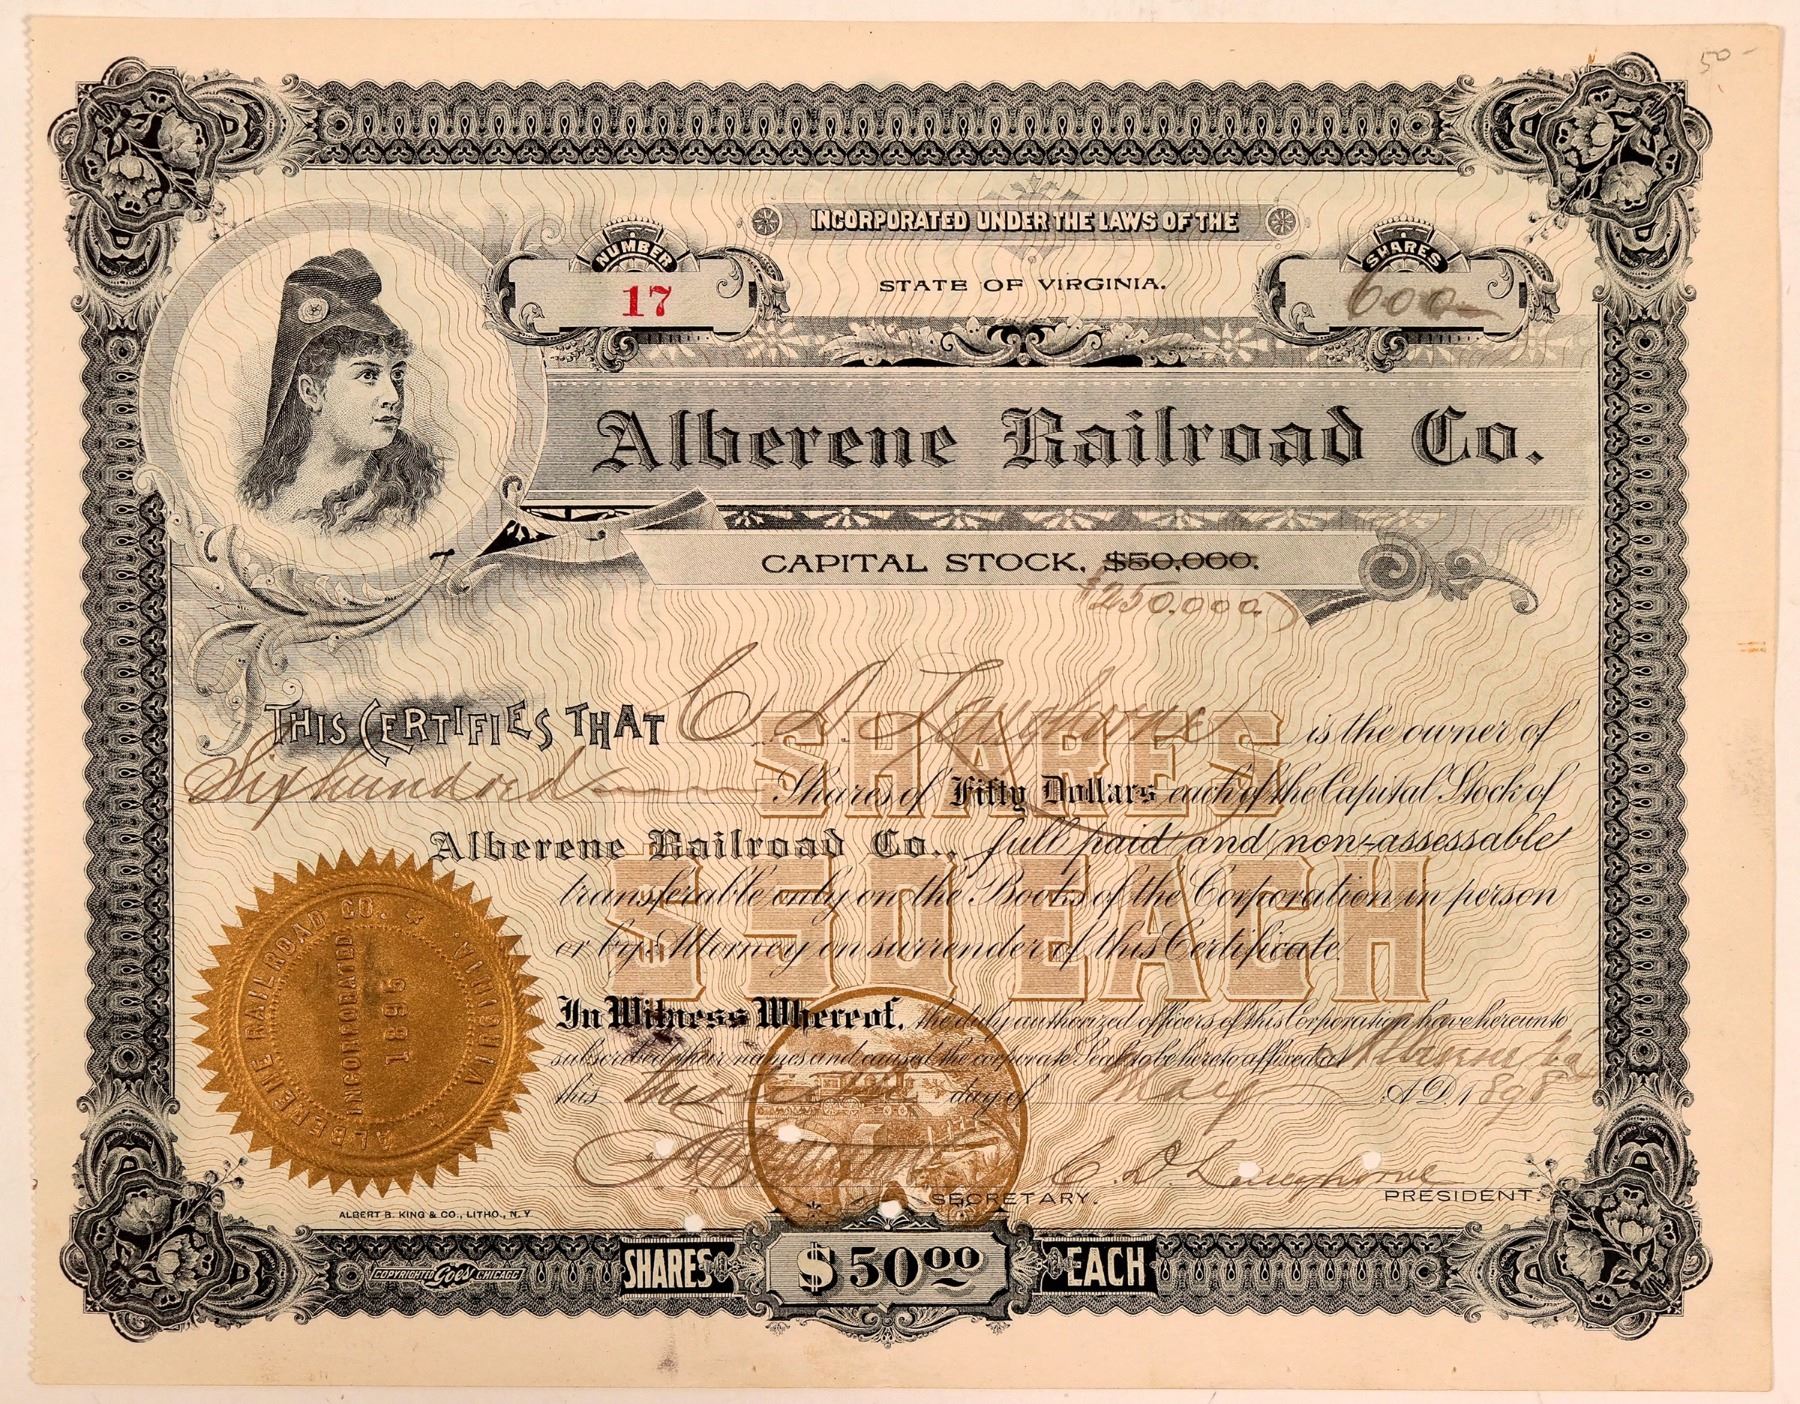 50-
INCORPORATED UNDER THE LAWS OF THE
STATE OF VIRGINIA.
NUMBER
17
SHARES
600
Alberene Railroad Co.
CAPITAL STOCK, $50,000.
$250.000
THIS CERTIFIES THAT C. D. Langhorne is the owner of
Six hundred Shares of Fifty Dollars each of the Capital Stock of
Alberene Railroad Co., full paid and non-assessable
transferable only on the Books of the Corporation in person
or by Attorney on surrender of this Certificate.
SHARES
$50 EACH
In Witness Whereof, the duly authorized officers of this Corporation have hereunto
subscribed their names and caused the corporate Seal to be hereto affixed at Alberene Va
this day of May A.D. 1898
SECRETARY.
C. D. Langhorne
PRESIDENT.
ALBERENE RAILROAD CO. VIRGINIA.
INCORPORATED
1895
ALBERT B. KING & CO., LITHO., N.Y
COPYRIGHTED Goes CHICAGO
SHARES $50.00 EACH